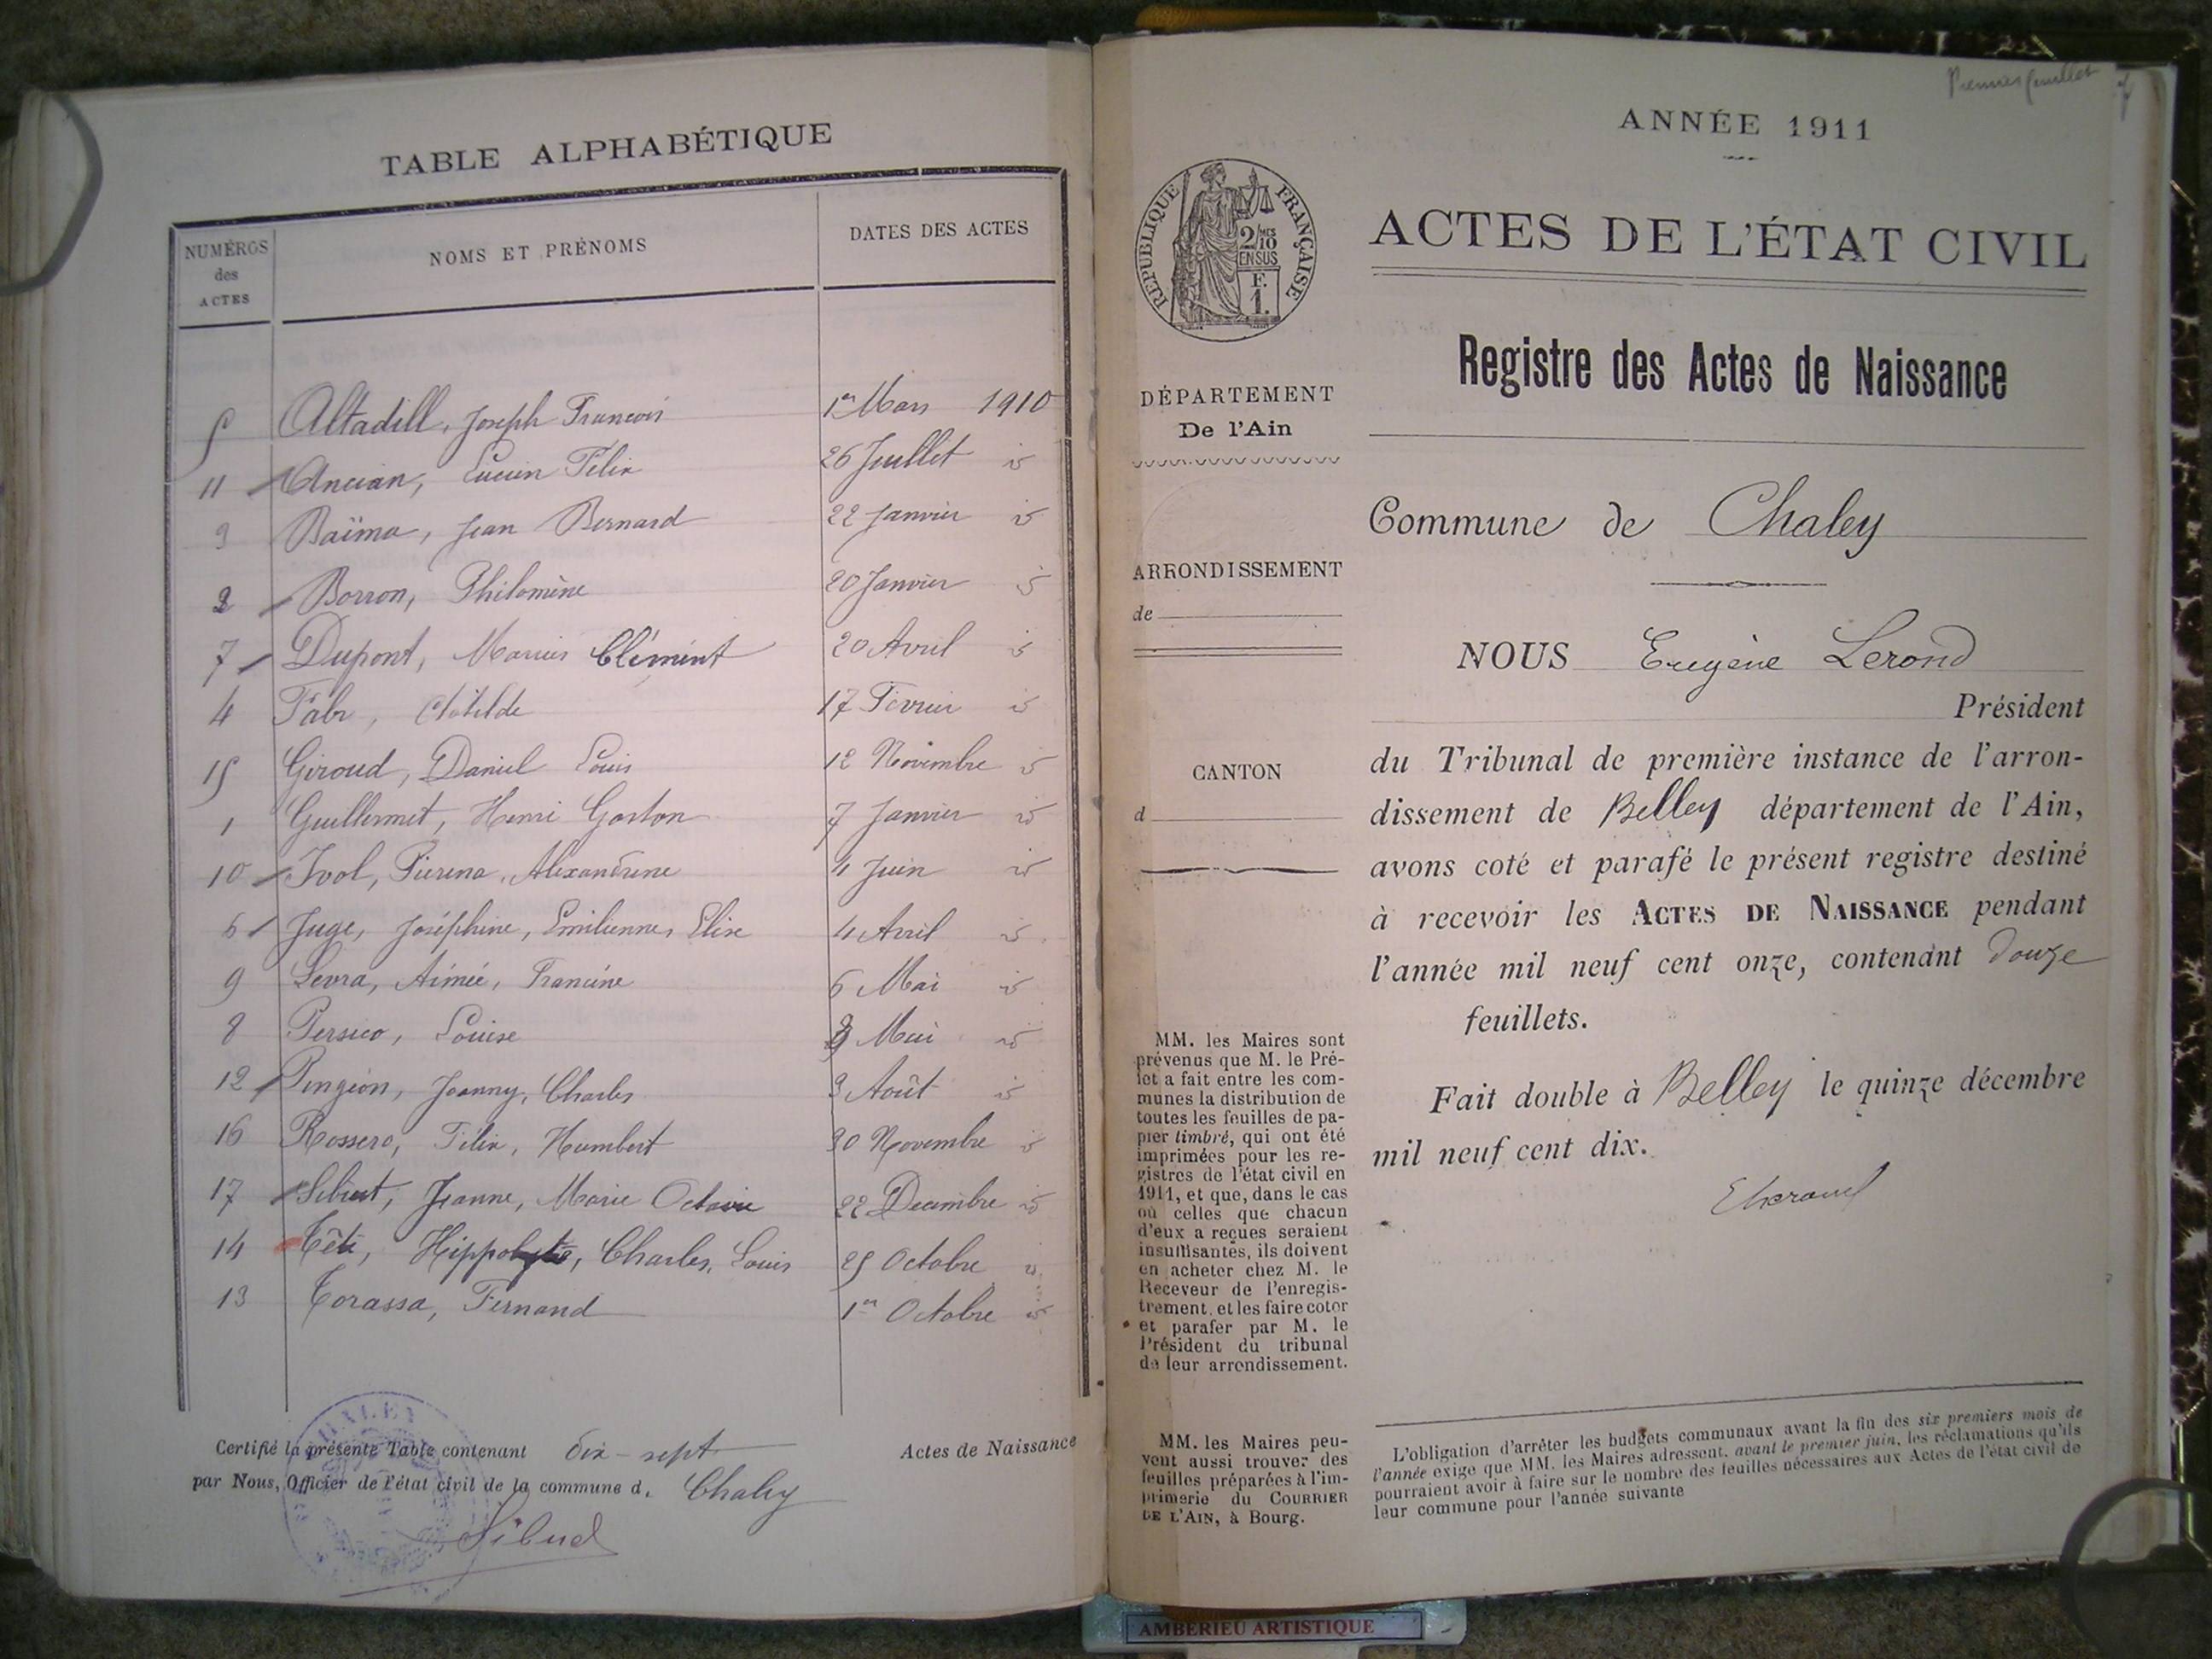 TABLE ALPHABÉTIQUE
NUMÉROS des ACTES
NOMS ET PRÉNOMS
DATES DES ACTES
5 Altadill, Joseph François 1er Mars 1910
11 Ancian, Lucien Félix 26 Juillet id
3 Baïma, Jean Bernard 22 Janvier id
2 Borron, Philomène 20 Janvier id
7 Dupont, Marius Clément 20 Avril id
4 Fabr, Clotilde 17 Février id
15 Giroud, Daniel Louis 12 Novembre id
1 Guillermet, Henri Gaston 7 Janvier id
10 Ivol, Pierina, Alexandrine 4 Juin id
6 Juge, Joséphine, Emilienne, Elise 4 Avril id
9 Levra, Aimée, Francine 6 Mai id
8 Persico, Louise Mai id
12 Pingeon, Joanny, Charles 3 Août id
16 Rossero, Félix, Humbert 30 Novembre id
17 Jeanne, Marie Octavie 22 Décembre id
14 Hippolyte, Charles, Louis 25 Octobre id
13 Torassa, Fernand 1er Octobre id
Certifié la présente Table contenant dix-sept Actes de Naissance
par Nous, Officier de l'état civil de la commune d. Chaley
CHALEY
Sibud
Premier feuillet
ANNÉE 1911
RÉPUBLIQUE FRANÇAISE
2/10 MES
EN SUS
F.
1.
ACTES DE L'ÉTAT CIVIL
Registre des Actes de Naissance
DÉPARTEMENT
De l'Ain
ARRONDISSEMENT
de
CANTON
d
Commune de Chaley
NOUS Eugène Lerond
Président
du Tribunal de première instance de l'arron-
dissement de Belley département de l'Ain,
avons coté et parafé le présent registre destiné
à recevoir les ACTES DE NAISSANCE pendant
l'année mil neuf cent onze, contenant douze
feuillets.
Fait double à Belley le quinze décembre
mil neuf cent dix.
MM. les Maires sont
prévenus que M. le Pré-
fet a fait entre les com-
munes la distribution de
toutes les feuilles de pa-
pier timbré, qui ont été
imprimées pour les re-
gistres de l'état civil en
1911, et que, dans le cas
où celles que chacun
d'eux a reçues seraient
insuffisantes, ils doivent
en acheter chez M. le
Receveur de l'enregis-
trement, et les faire coter
et parafer par M. le
Président du tribunal
de leur arrondissement.
MM. les Maires peu-
vent aussi trouver des
feuilles préparées à l'im-
primerie du COURRIER
DE L'AIN, à Bourg.
L'obligation d'arrêter les budgets communaux avant la fin des six premiers mois de
l'année exige que MM. les Maires adressent, avant le premier juin, les réclamations qu'ils
pourraient avoir à faire sur le nombre des feuilles nécessaires aux Actes de l'état civil de
leur commune pour l'année suivante
AMBERIEU ARTISTIQUE